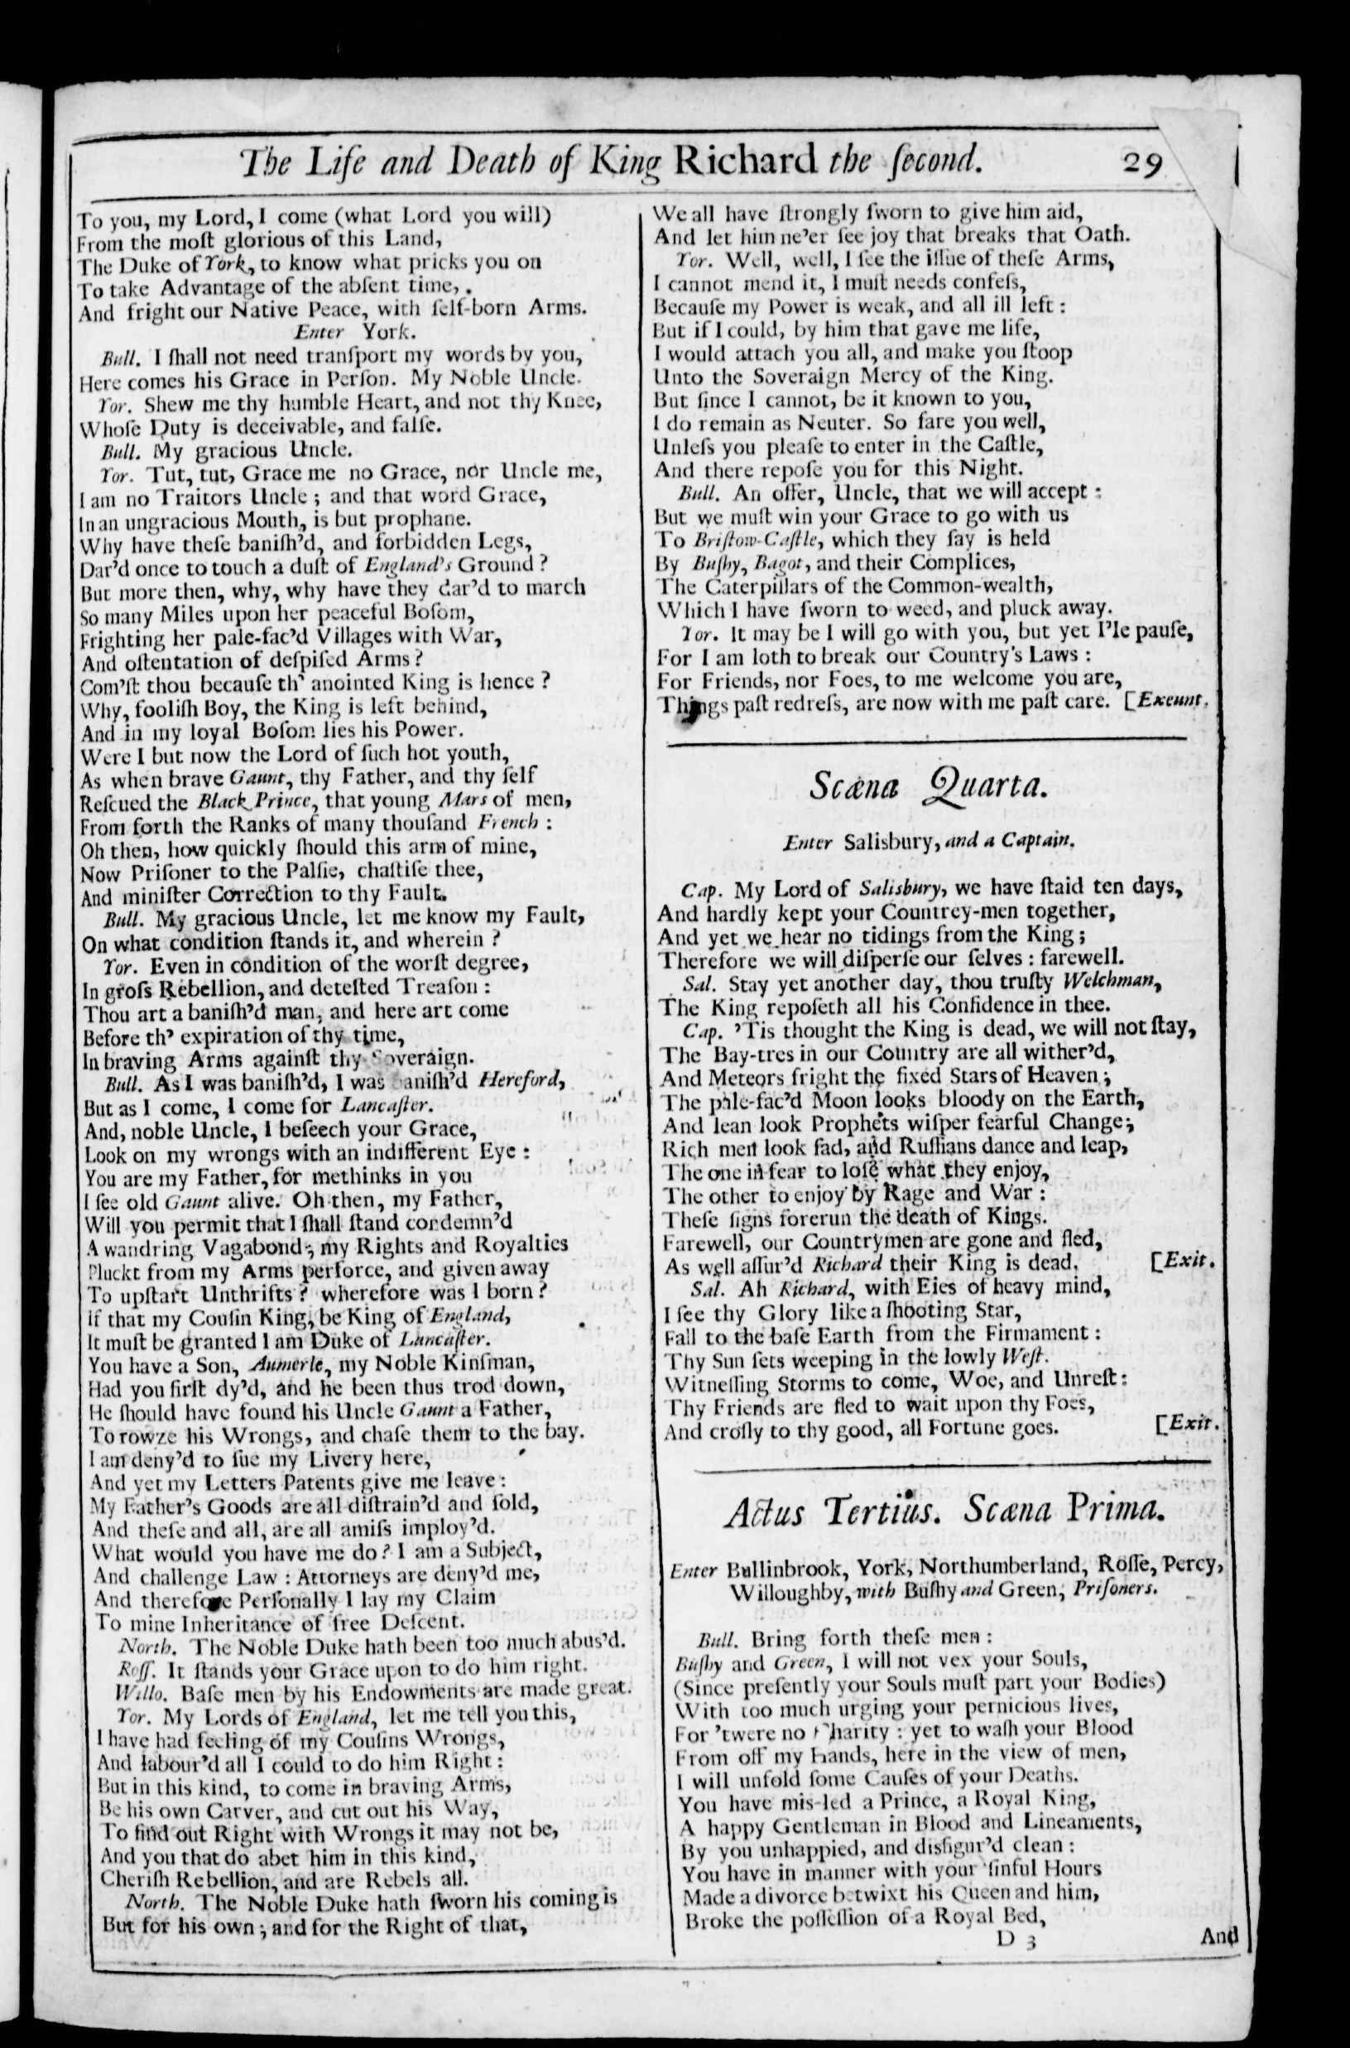 The Life and Death of King Richard the ſecond. 29
To you, my Lord, I come (what Lord you will)
From the moſt glorious of this Land,
The Duke of York, to know what pricks you on
To take Advantage of the abſent time,
And fright our Native Peace, with ſelf-born Arms.
Enter York.
Bull. I ſhall not need tranſport my words by you,
Here comes his Grace in Perſon. My Noble Uncle.
Yor. Shew me thy humble Heart, and not thy Knee,
Whoſe Duty is deceivable, and falſe.
Bull. My gracious Uncle.
Yor. Tut, tut, Grace me no Grace, nor Uncle me,
I am no Traitors Uncle; and that word Grace,
In an ungracious Mouth, is but prophane.
Why have theſe baniſh'd, and forbidden Legs,
Dar'd once to touch a duſt of England's Ground?
But more then, why, why have they dar'd to march
So many Miles upon her peaceful Boſom,
Frighting her pale-fac'd Villages with War,
And oſtentation of deſpiſed Arms?
Com'ſt thou becauſe th' anointed King is hence?
Why, fooliſh Boy, the King is left behind,
And in my loyal Boſom lies his Power.
Were I but now the Lord of ſuch hot youth,
As when brave Gaunt, thy Father, and thy ſelf
Reſcued the Black Prince, that young Mars of men,
From forth the Ranks of many thouſand French:
Oh then, how quickly ſhould this arm of mine,
Now Priſoner to the Palſie, chaſtiſe thee,
And miniſter Correction to thy Fault.
Bull. My gracious Uncle, let me know my Fault,
On what condition ſtands it, and wherein?
Yor. Even in condition of the worſt degree,
In groſs Rebellion, and deteſted Treaſon:
Thou art a baniſh'd man, and here art come
Before th' expiration of thy time,
In braving Arms againſt thy Soveraign.
Bull. As I was baniſh'd, I was baniſh'd Hereford,
But as I come, I come for Lancaſter.
And, noble Uncle, I beſeech your Grace,
Look on my wrongs with an indifferent Eye:
You are my Father, for methinks in you
I ſee old Gaunt alive. Oh then, my Father,
Will you permit that I ſhall ſtand condemn'd
A wandring Vagabond; my Rights and Royalties
Pluckt from my Arms perforce, and given away
To upſtart Unthrifts? wherefore was I born?
If that my Couſin King, be King of England,
It muſt be granted I am Duke of Lancaſter.
You have a Son, Aumerle, my Noble Kinſman,
Had you firſt dy'd, and he been thus trod down,
He ſhould have found his Uncle Gaunt a Father,
To rowze his Wrongs, and chaſe them to the bay.
I am deny'd to ſue my Livery here,
And yet my Letters Patents give me leave:
My Father's Goods are all diſtrain'd and ſold,
And theſe and all, are all amiſs imploy'd.
What would you have me do? I am a Subject,
And challenge Law: Attorneys are deny'd me,
And therefore Perſonally I lay my Claim
To mine Inheritance of free Deſcent.
North. The Noble Duke hath been too much abus'd.
Roſſ. It ſtands your Grace upon to do him right.
Willo. Baſe men by his Endowments are made great.
Yor. My Lords of England, let me tell you this,
I have had feeling of my Couſins Wrongs,
And labour'd all I could to do him Right:
But in this kind, to come in braving Arms,
Be his own Carver, and cut out his Way,
To find out Right with Wrongs it may not be,
And you that do abet him in this kind,
Cheriſh Rebellion, and are Rebels all.
North. The Noble Duke hath ſworn his coming is
But for his own; and for the Right of that,
We all have ſtrongly ſworn to give him aid,
And let him ne'er ſee joy that breaks that Oath.
Yor. Well, well, I ſee the iſſue of theſe Arms,
I cannot mend it, I muſt needs confeſs,
Becauſe my Power is weak, and all ill left:
But if I could, by him that gave me life,
I would attach you all, and make you ſtoop
Unto the Soveraign Mercy of the King.
But ſince I cannot, be it known to you,
I do remain as Neuter. So fare you well,
Unleſs you pleaſe to enter in the Caſtle,
And there repoſe you for this Night.
Bull. An offer, Uncle, that we will accept:
But we muſt win your Grace to go with us
To Briſtow-Caſtle, which they ſay is held
By Buſhy, Bagot, and their Complices,
The Caterpillars of the Common-wealth,
Which I have ſworn to weed, and pluck away.
Yor. It may be I will go with you, but yet I'le pauſe,
For I am loth to break our Country's Laws:
For Friends, nor Foes, to me welcome you are,
Things paſt redreſs, are now with me paſt care. [Exeunt.
Scæna Quarta.
Enter Salisbury, and a Captain.
Cap. My Lord of Salisbury, we have ſtaid ten days,
And hardly kept your Countrey-men together,
And yet we hear no tidings from the King;
Therefore we will diſperſe our ſelves: farewell.
Sal. Stay yet another day, thou truſty Welchman,
The King repoſeth all his Confidence in thee.
Cap. 'Tis thought the King is dead, we will not ſtay,
The Bay-tres in our Country are all wither'd,
And Meteors fright the fixed Stars of Heaven;
The pale-fac'd Moon looks bloody on the Earth,
And lean look Prophets wiſper fearful Change;
Rich men look ſad, and Ruffians dance and leap,
The one in fear to loſe what they enjoy,
The other to enjoy by Rage and War:
Theſe ſigns forerun the death of Kings.
Farewell, our Countrymen are gone and fled,
As well aſſur'd Richard their King is dead. [Exit.
Sal. Ah Richard, with Eies of heavy mind,
I ſee thy Glory like a ſhooting Star,
Fall to the baſe Earth from the Firmament:
Thy Sun ſets weeping in the lowly Weſt.
Witneſſing Storms to come, Woe, and Unreſt:
Thy Friends are fled to wait upon thy Foes,
And croſly to thy good, all Fortune goes. [Exit.
Actus Tertius. Scæna Prima.
Enter Bullinbrook, York, Northumberland, Roſſe, Percy,
Willoughby, with Buſhy and Green, Priſoners.
Bull. Bring forth theſe men:
Buſhy and Green, I will not vex your Souls,
(Since preſently your Souls muſt part your Bodies)
With too much urging your pernicious lives,
For 'twere no Charity: yet to waſh your Blood
From off my Hands, here in the view of men,
I will unfold ſome Cauſes of your Deaths.
You have miſ-led a Prince, a Royal King,
A happy Gentleman in Blood and Lineaments,
By you unhappied, and disfigur'd clean:
You have in manner with your ſinful Hours
Made a divorce betwixt his Queen and him,
Broke the poſſeſſion of a Royal Bed,
D 3 And